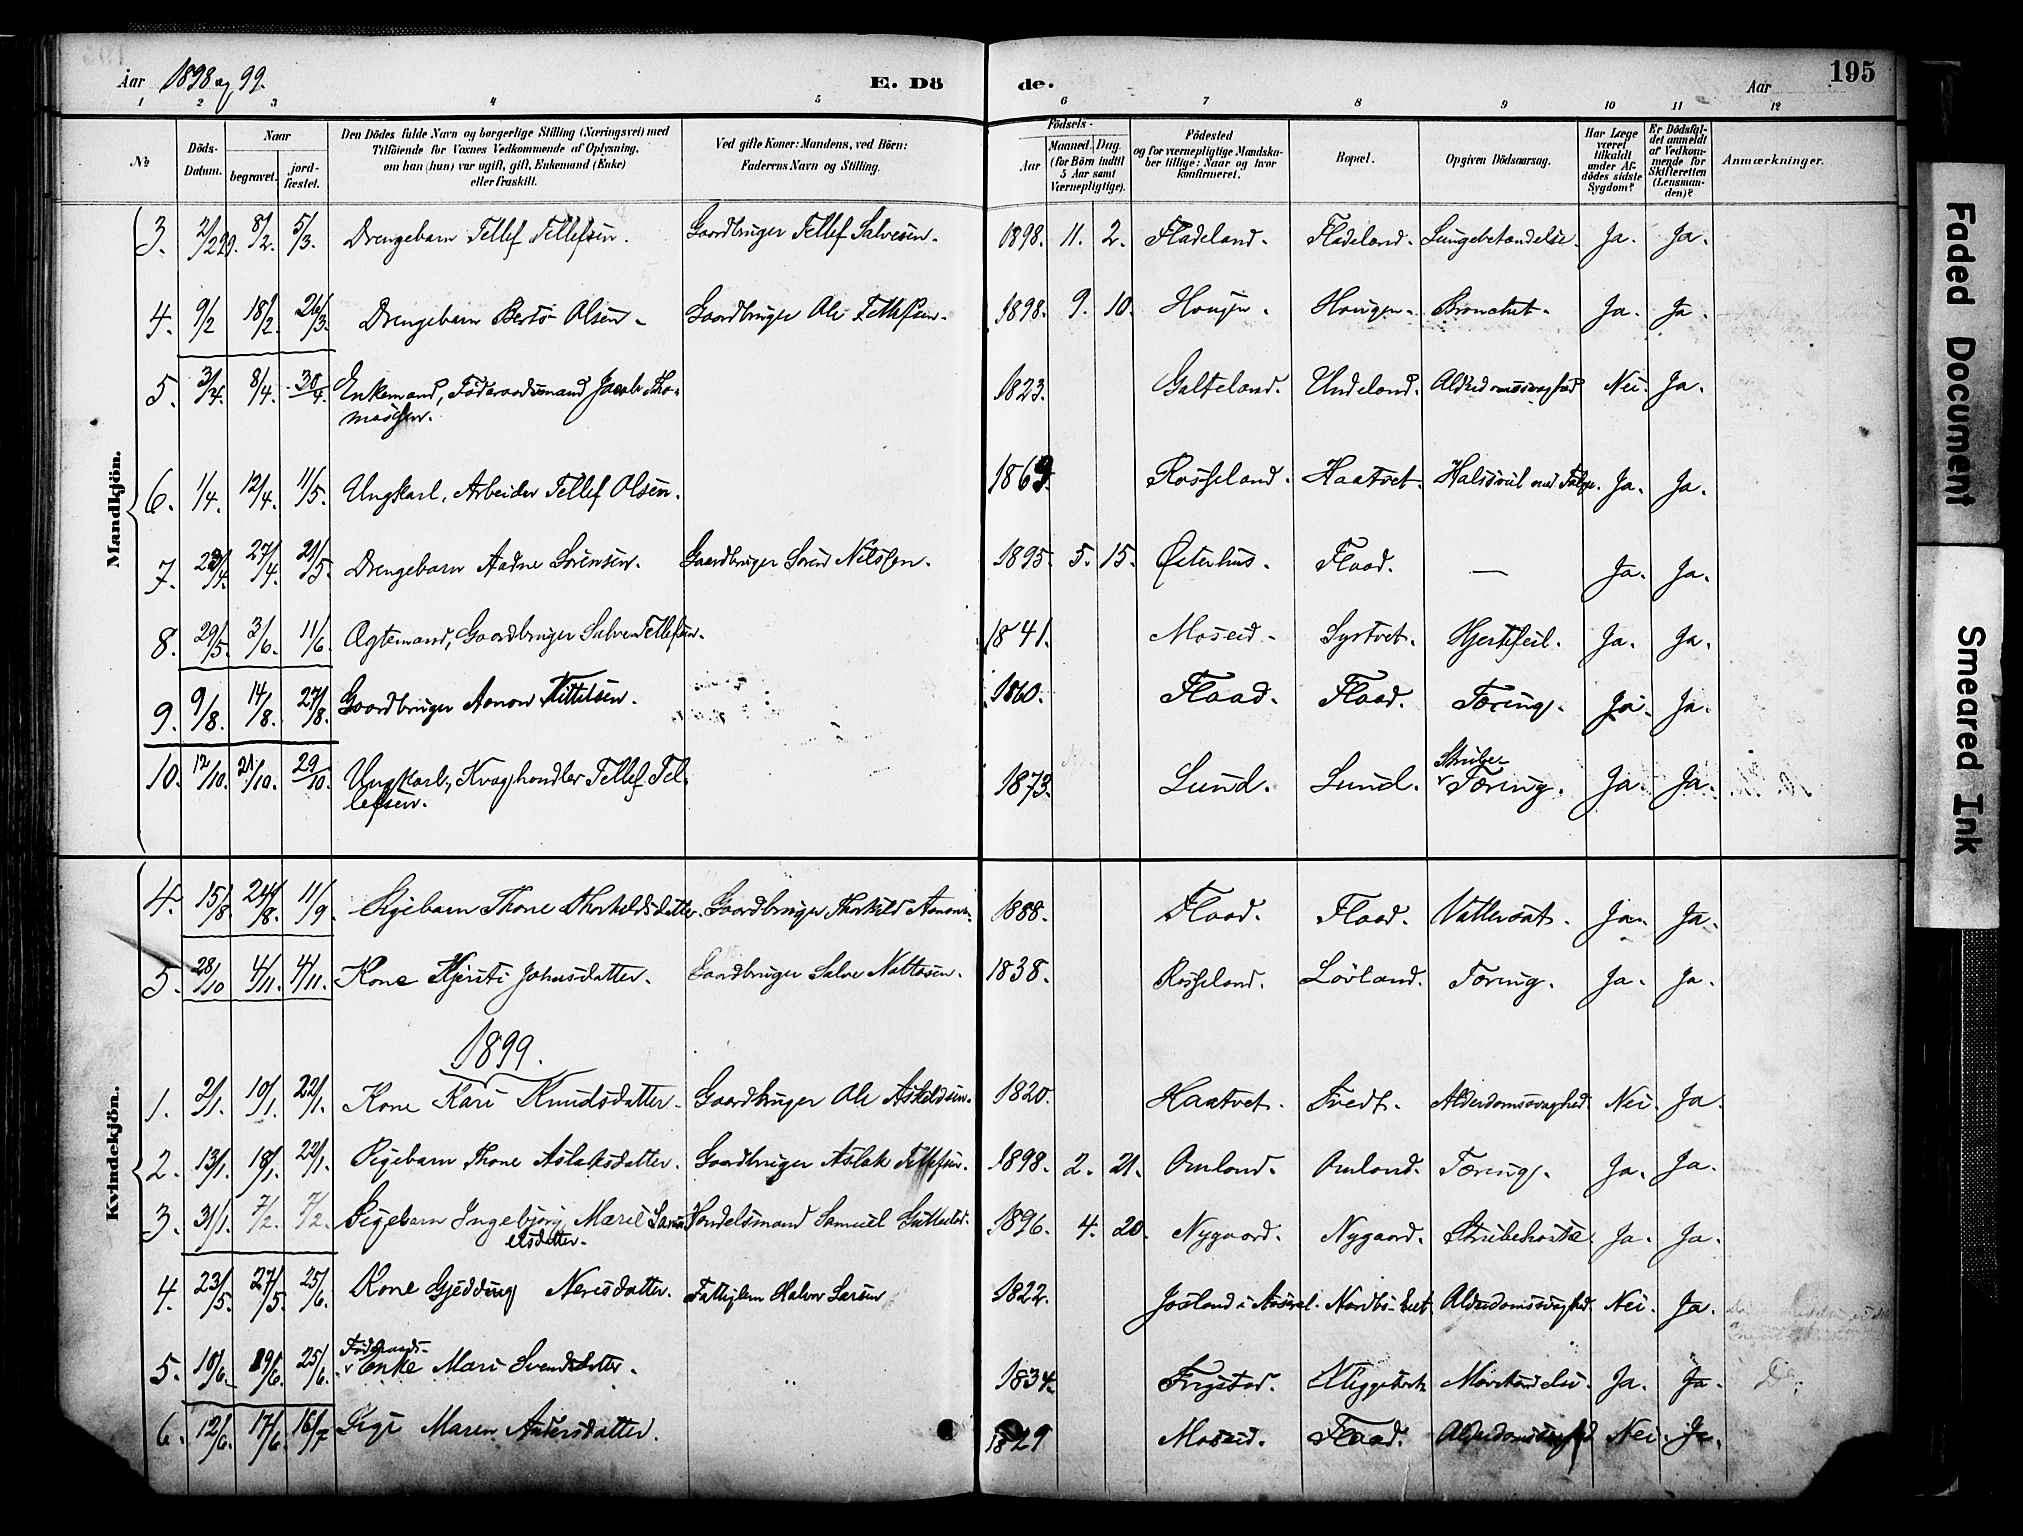 195
Aar 1898 og 99. E. Dö de. Aar
1 2 3 4 5 6 7 8 9 10 11 12
No
Döds-Datum.
Naar
begravet.
jord-fæstet.
Den Dödes fulde Navn og borgerlige Stilling (Næringsvei) med
Tilföiende for Voxnes Vedkommende af Oplysning,
om han (hun) var ugift, gift, Enkemand (Enke)
eller fraskilt.
Ved gifte Koner: Mandens, ved Börn:
Faderens Navn og Stilling.
Födsels-
Aar
Maaned. Dag.
(for Börn indtil
5 Aar samt
Værnepligtige).
Födested
og for værnepligtige Mandska-
ber tillige: Naar og hvor
konfirmeret.
Bopæl.
Opgiven Dödsaarsag.
Har Læge
været
tilkaldt
under Af-
dödes sidste
Sygdom?
Er Dödsfal-
det anmeldt
af Vedkom-
mende for
Skifteretten
(Lensman-
den)?
Anmærkninger.
Mandkjön.
3. 2/2 8/2. 5/3. Drengebarn Tellef Tellefsen. Gaardbruger Tellef Salvesen. 1898. 11. 2. Fladeland. Fladeland. Lungebetændelse. Ja. Ja.
4. 9/2 18/2. 26/3. Drengebarn Olsen. Gaardbruger Ole Tellefsen. 1898. 9. 10. Hougen. Hougen. Bronchit. Ja. Ja.
5. 3/4. 8/4. 30/4. Enkemand, Föderaadsmand Jacob Tho-
massen. 1823. Galteland. Undeland. Alderdomssvaghed Nei. Ja.
6. 1/4. 12/4. 11/5. Ungkarl, Arbeider Tellef Olsen. 1869. Rosseland. Haatvet. Halsonde med Følge. Ja. Ja.
7. 27/4. 21/5. Drengebarn Aadne Sörensen. Gaardbruger Sören Nilssen. 1895. 5. 15. Østerhus. Flaad. — Ja. Ja.
8. 29/5. 3/6. 11/6. Ægtemand, Gaardbruger Salve Tellefsen. 1841. Moseid. Syrtvet. Hjertefeil. Ja. Ja.
9. 9/8. 14/8. 27/8. Gaardbruger Aanon Kittelsen. 1860. Flaad. Flaad. Tæring. Ja. Ja.
10. 12/10. 21/10. 29/10. Ungkarl, Kvæghandler Tellef Tel
lefsen. 1873. Lund. Lund. Strube-
Tæring. Ja. Ja.
Kvindekjön.
4. 15/8. 24/8. 11/9. Pigebarn Thone Thorkildsdatter. Gaardbruger Thorkild Aanons. 1888. Flaad. Flaad. Vattersot. Ja. Ja.
5. 28/10 4/11. 4/11. Kone Kjersti Johnsdatter. Gaardbruger Salve Nottosen. 1838. Rosseland. Lövland. Tæring. Ja. Ja.
1899.
1. 2/1. 10/1. 22/1. Kone Kari Knudsdatter. Gaardbruger Ole Askildsen. 1820. Haatvet. Tvedt. Alderdomssvaghed. Nei. Ja.
2. 13/1. 18/1. 22/1. Pigebarn Thone Aslaksdatter. Gaardbruger Aslak Tellefsen. 1898. 2. 21. Omland. Omland. Tæring. Ja. Ja.
3. 31/1. 7/2. 7/2. Pigebarn Ingebjörg Marie Samu
elsdatter. Handelsmand Samuel 1896. 4. 20. Nygaard. Nygaard. Strubehoste. Ja. Ja.
4. 23/5. 27/5. 25/6. Kone Gjedding Nerisdatter. Fattiglem Halvor Larsen 1822. Josland i Aaseral. Alderdomssvaghed. Nei. Ja.
5. 10/6. 19/6. 25/6. Föderaads-
Enke Mari Svendsdatter. 1834. Frigstad. Ja. Ja. Do.
6. 12/6. 17/6. 16/7 Pige Maren Andersdatter. 1829 Moseid. Flaad. Alderdomssvaghed Nei. Ja.
Faded Document
Smeared Ink